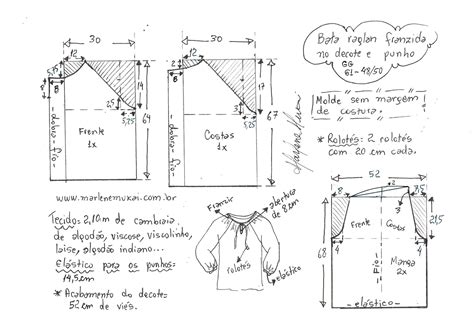 30
12
5,25
8
14
25
3
5,25
64
dobra - fio -
Frente
1x
30
12
8
17
25
3
5,25
67
dobra - fio -
Costas
1x
Bata raglan franzida
no decote e punho
GG
G1-48/50
Molde sem margem
de costura.
* Rolotês: 2 rolotês
com 20 cm cada.
www.marlenemukai.com.br
Tecido: 2,10m de cambraia
de algodão, viscose, viscolinho,
laise, algodão indiano...
Elástico para os punhos:
* Acabamento do decote:
52 cm de viés.
Franzir
abertura
de 8 cm
rolotês
elástico
52
8
2
3,5
3
Frente
Costas
21,5
4
4
68
Fio
Manga
2x
- elástico -